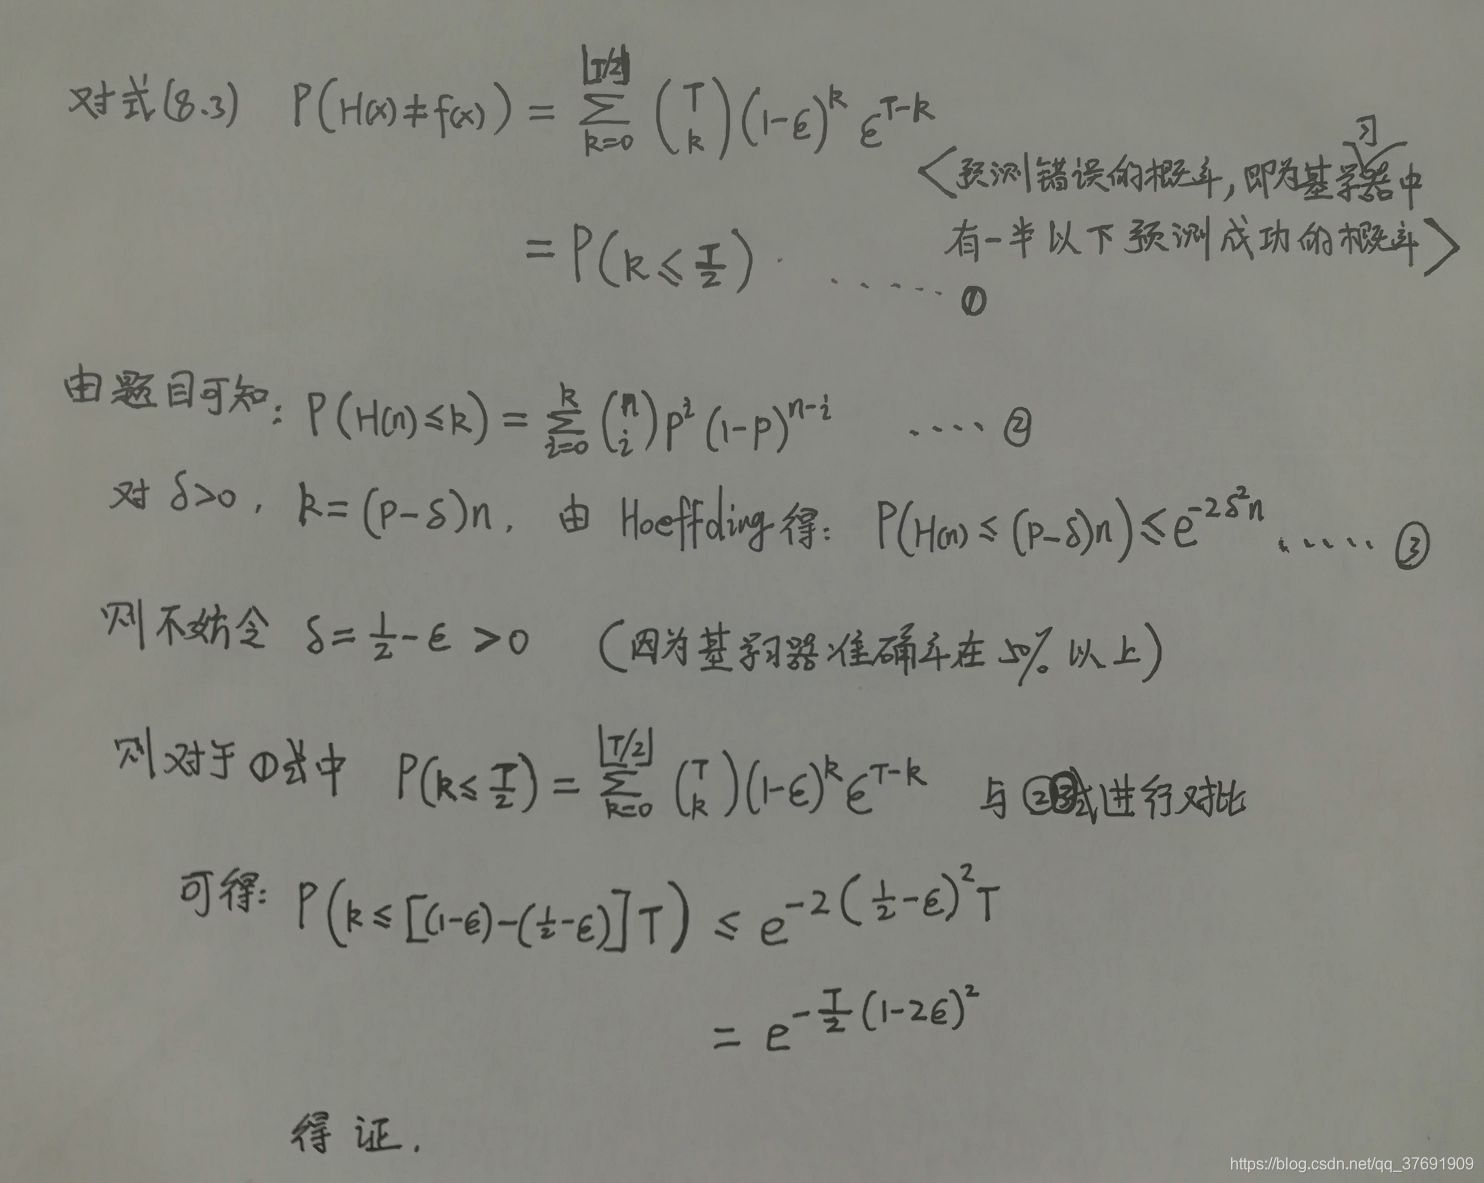 对式(8.3) P(H(x)≠f(x)) = ∑_{k=0}^{⌊T/2⌋} (T k) (1-ϵ)^k ϵ^{T-k}
<预测错误的概率,即为基学习器中
= P(k ≤ T/2) ······ ①
有一半以下预测成功的概率>
由题目可知: P(H(n)≤k) = ∑_{i=0}^{k} (n i) p^i (1-p)^{n-i} ···· ②
对 δ>0, k=(p-δ)n, 由 Hoeffding 得: P(H(n) ≤ (p-δ)n) ≤ e^{-2δ²n} ····· ③
则不妨令 δ = 1/2 - ϵ > 0 (因为基学习器准确率在50%以上)
则对于①式中 P(k ≤ T/2) = ∑_{k=0}^{⌊T/2⌋} (T k) (1-ϵ)^k ϵ^{T-k} 与②③式进行对比
可得: P(k ≤ [(1-ϵ)-(1/2-ϵ)]T) ≤ e^{-2(1/2-ϵ)²T}
= e^{-T/2 (1-2ϵ)²}
得证.
https://blog.csdn.net/qq_37691909